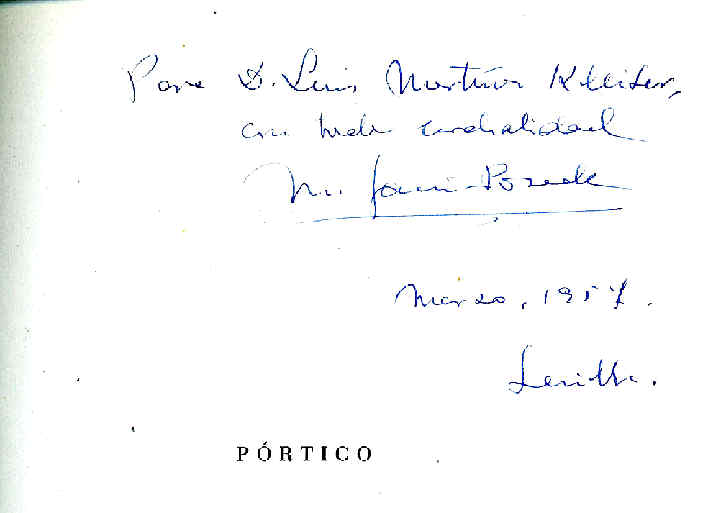 Para D. Luis Martínez Kleiser,
con toda cordialidad
M. García-Posada
Marzo, 1957.
Sevilla.
PÓRTICO